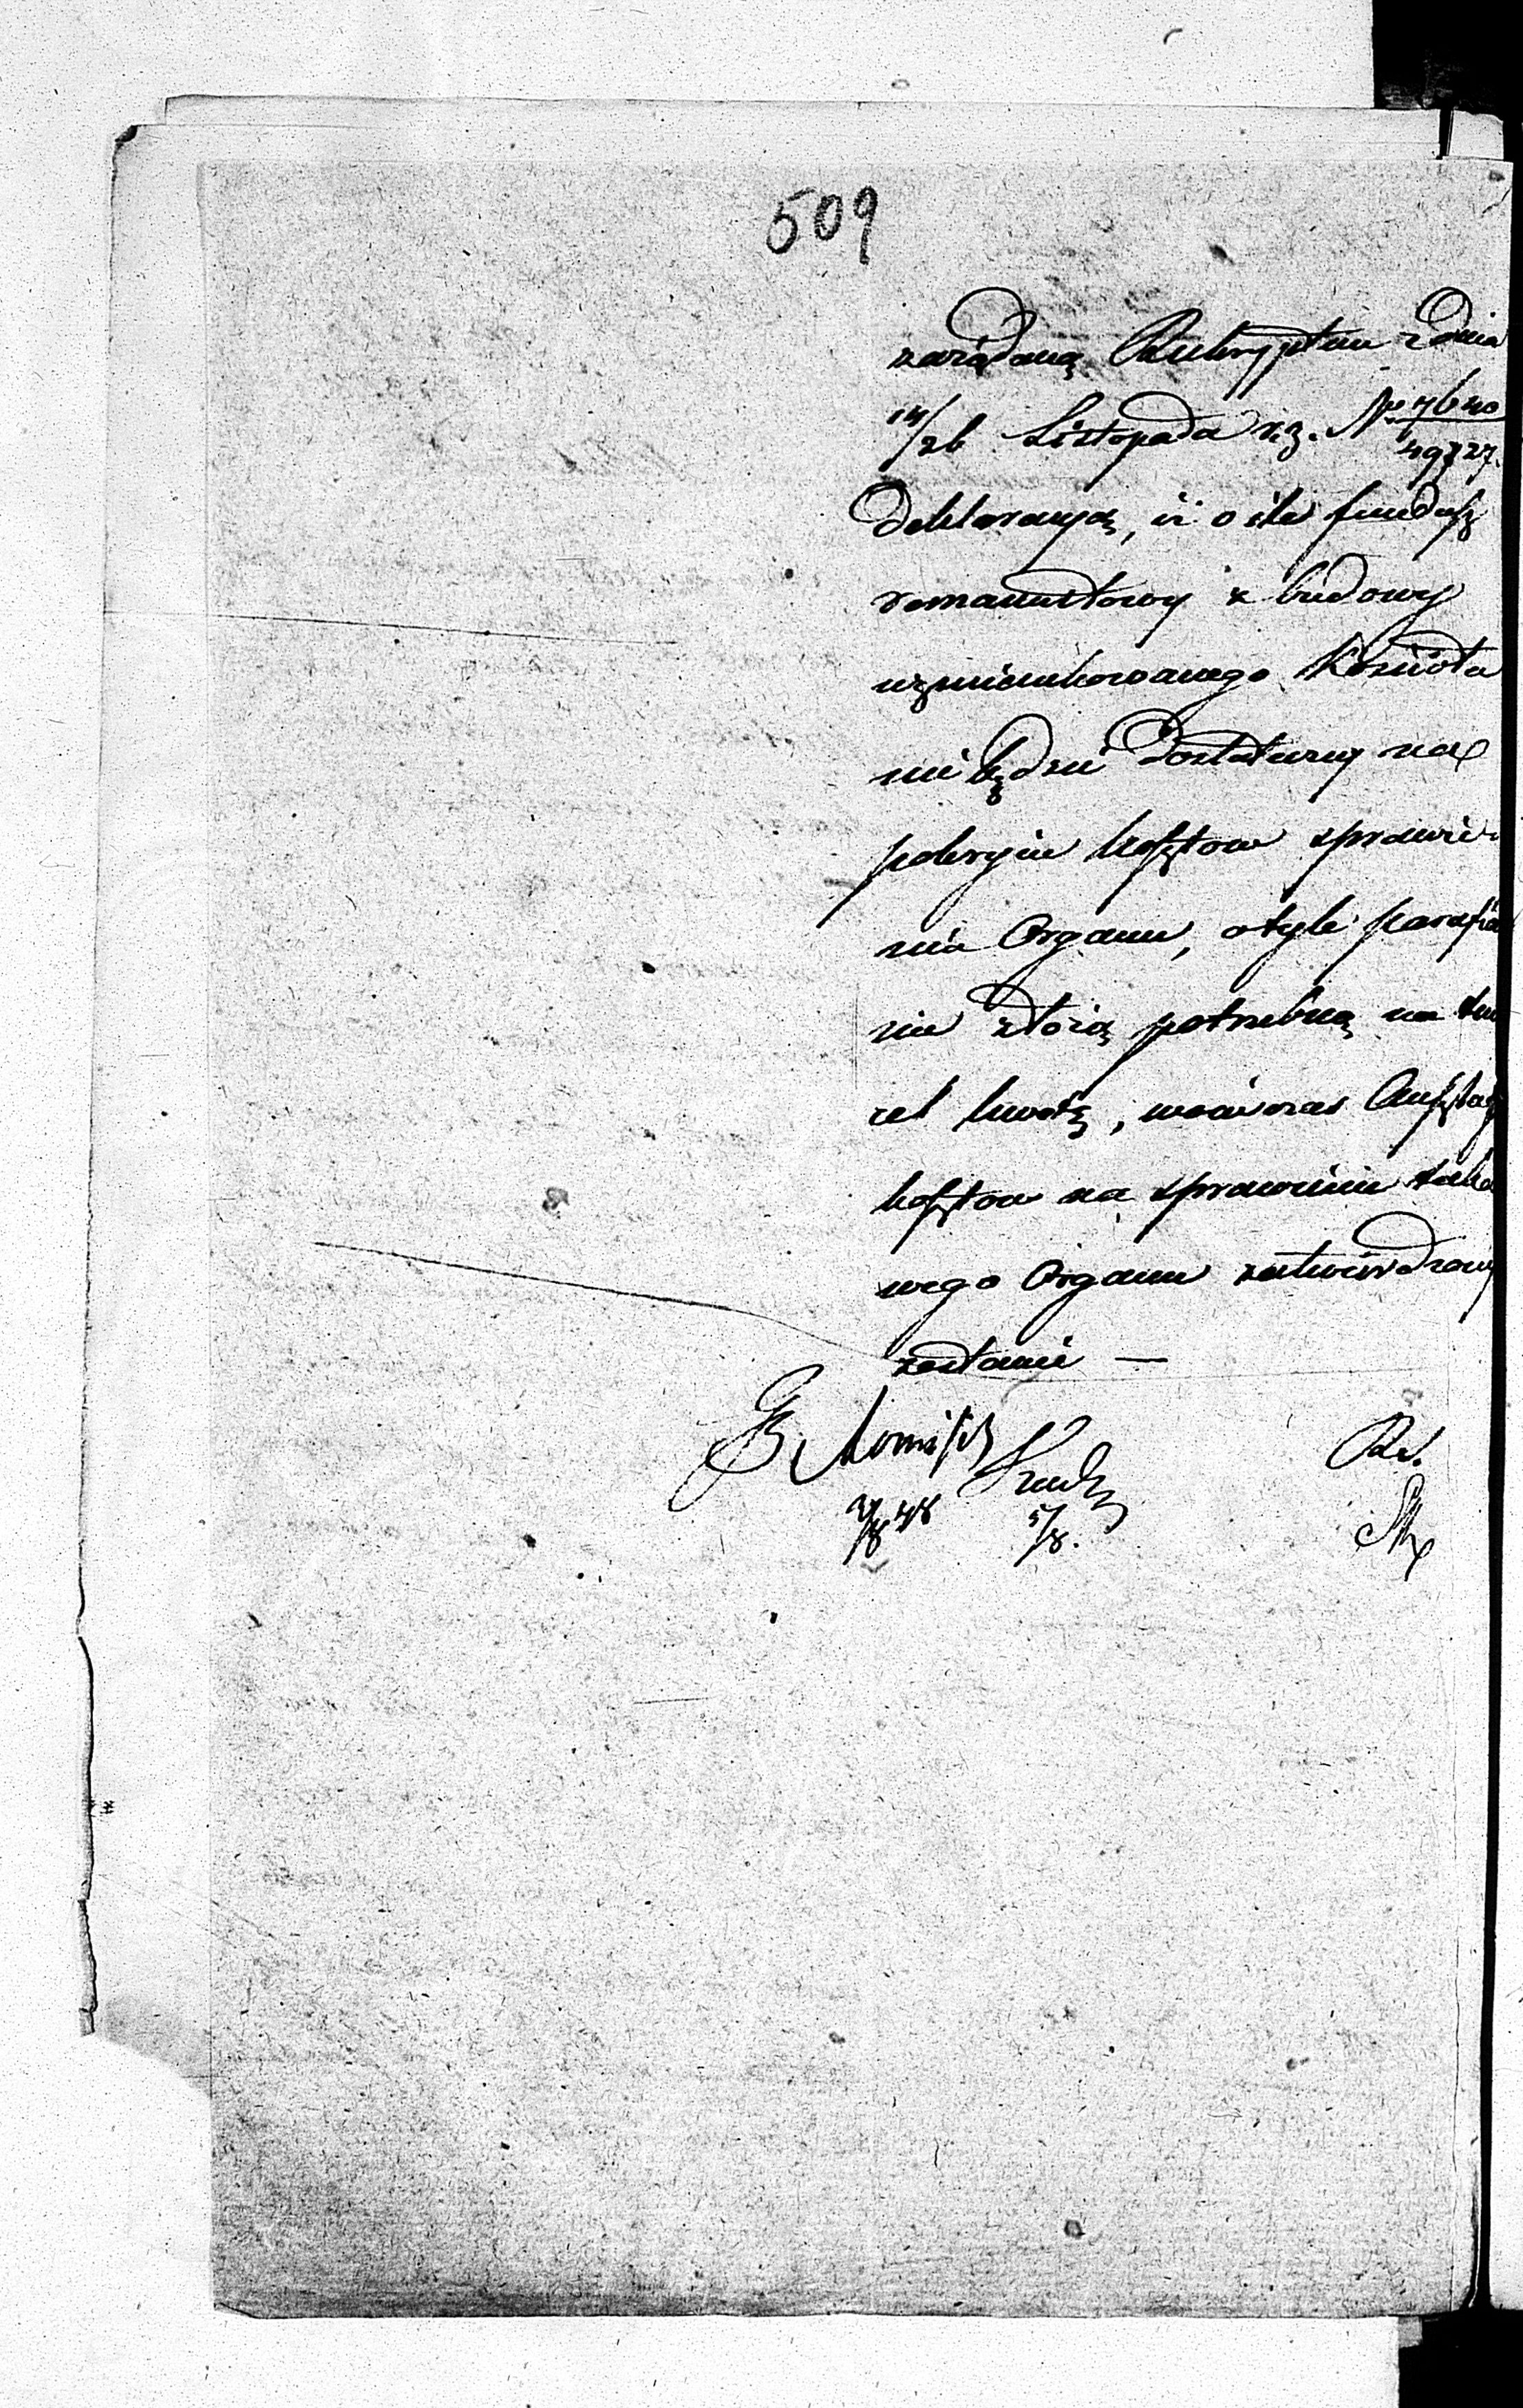 509
zażądaną Reskryptem z dnia
14/26 Listopada r.z. № 7640/49727
deklaracyą, iż o ile fundusz
remanentowy z budowy
wzmiankowanego Kościoła
nie będzie dostateczny na
pokrycie kosztow sprawie-
nia Organu, o tyle parafia
nie złożą potrzebną na ten
cel kwotę, wówczas Anszlag
kosztow na sprawienie tako
wego Organu zatwierdzony
zostanie —
5/8.